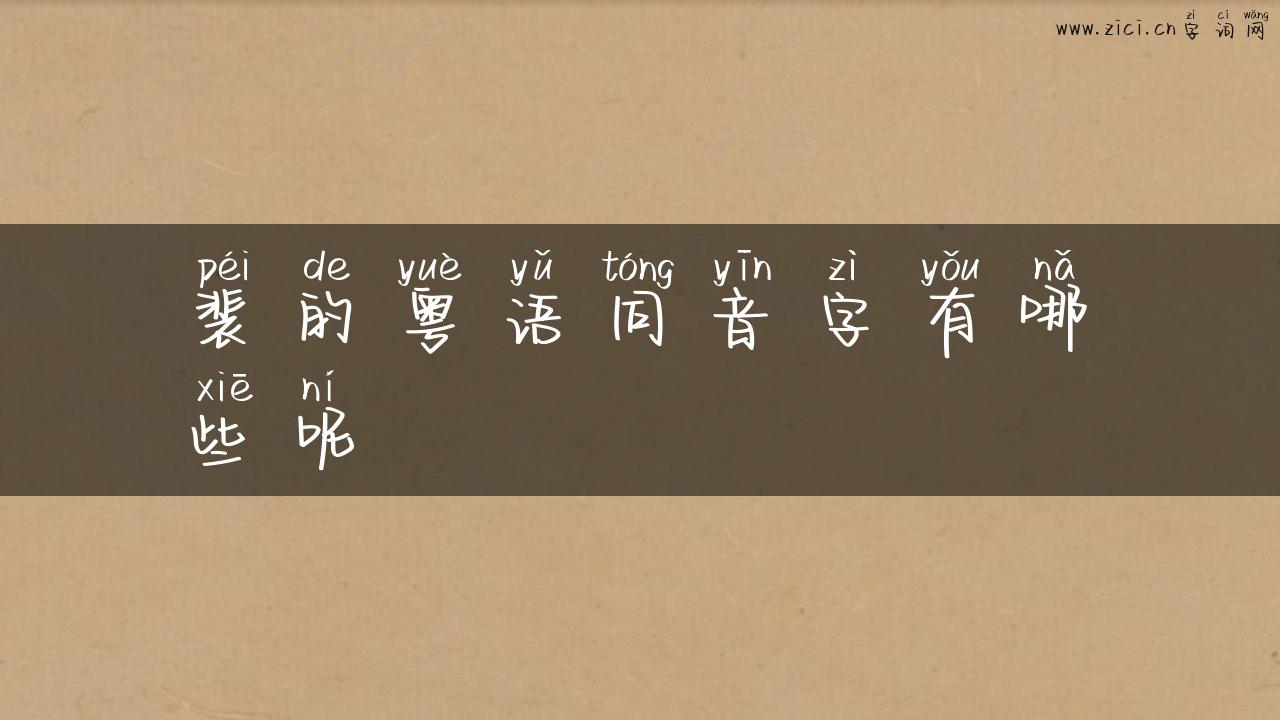 zì cí wǎng
www.zici.cn 字词网
péi de yuè yǔ tóng yīn zì yǒu nǎ
裴的粤语同音字有哪
xiē ní
些呢